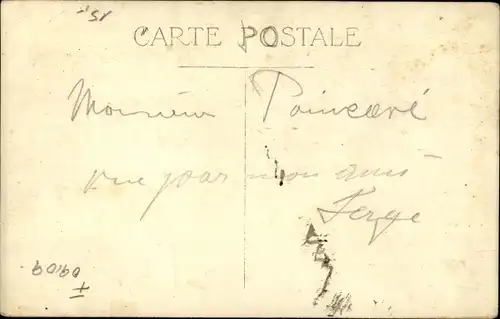 CARTE POSTALE
Monsieur Poincaré
vue par mon ami
Serge